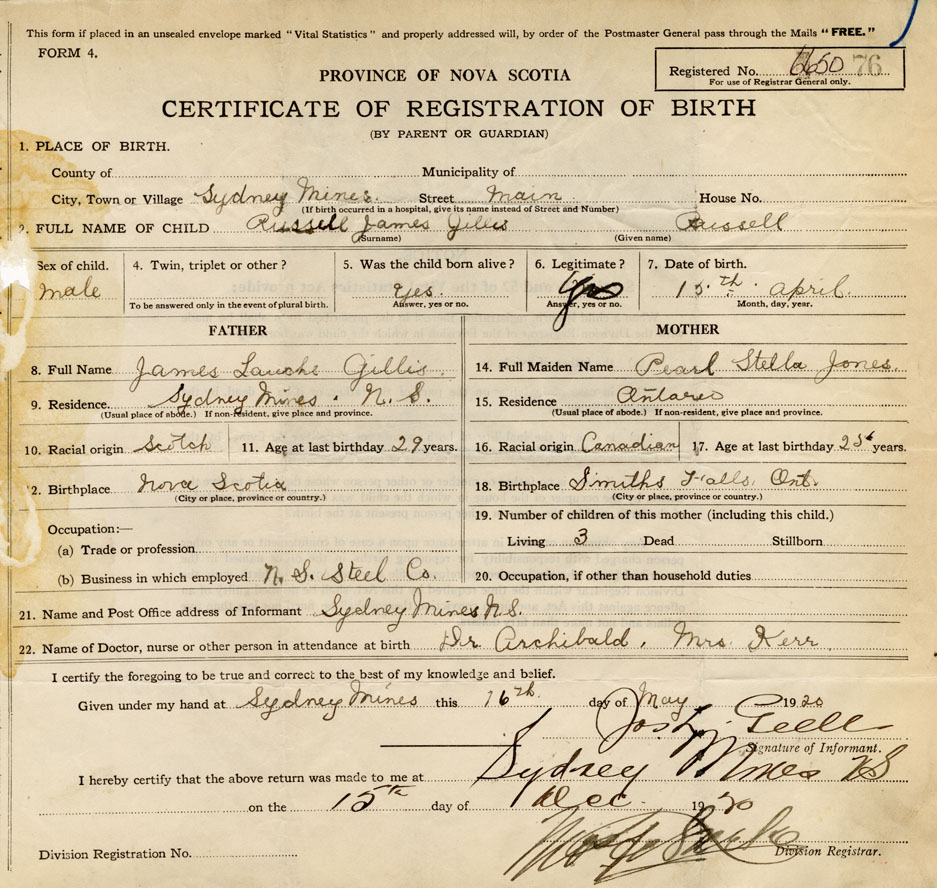 This form if placed in an unsealed envelope marked "Vital Statistics" and properly addressed will, by order of the Postmaster General pass through the Mails "FREE."
FORM 4.
Registered No. 6650 76
For use of Registrar General only.
PROVINCE OF NOVA SCOTIA
CERTIFICATE OF REGISTRATION OF BIRTH
(BY PARENT OR GUARDIAN)
1. PLACE OF BIRTH.
County of Municipality of
City, Town or Village Sydney Mines. Street Main House No.
(If birth occurred in a hospital, give its name instead of Street and Number)
2. FULL NAME OF CHILD Russell James Gillis Russell
(Surname) (Given name)
Sex of child. 4. Twin, triplet or other? 5. Was the child born alive? 6. Legitimate? 7. Date of birth.
male Yes Yes 15th April
To be answered only in the event of plural birth. Answer, yes or no. Answer, yes or no. Month, day, year.
FATHER MOTHER
8. Full Name James Gillis. 14. Full Maiden Name Pearl Stella Jones.
9. Residence Sydney Mines. N. S. 15. Residence Ontario
(Usual place of abode.) If non-resident, give place and province. (Usual place of abode.) If non-resident, give place and province.
10. Racial origin Scotch 11. Age at last birthday 29 years. 16. Racial origin Canadian 17. Age at last birthday years.
2. Birthplace Nova Scotia 18. Birthplace Smiths Falls Ont.
(City or place, province or country.) (City or place, province or country.)
19. Number of children of this mother (including this child.)
Occupation:—
Living 3 Dead Stillborn
(a) Trade or profession
(b) Business in which employed N. S. Steel Co. 20. Occupation, if other than household duties
21. Name and Post Office address of Informant Sydney Mines N.S.
22. Name of Doctor, nurse or other person in attendance at birth Dr. Archibald. Mrs. Kerr
I certify the foregoing to be true and correct to the best of my knowledge and belief.
Given under my hand at Sydney Mines this 16th day of May 1920
Signature of Informant.
I hereby certify that the above return was made to me at Sydney Mines NS
on the 15th day of Dec. 1920
Division Registration No. Division Registrar.